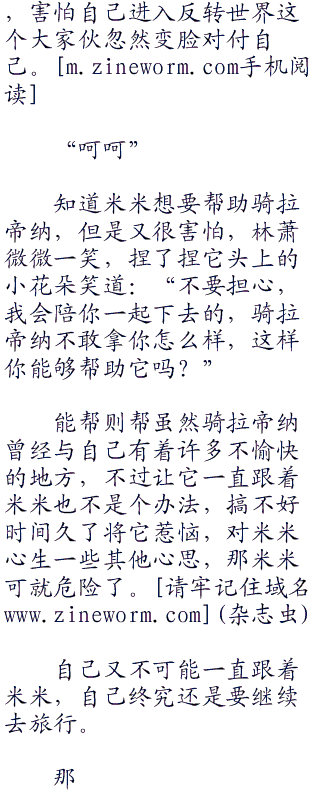 ，害怕自己进入反转世界这
个大家伙忽然变脸对付自
己。[m.zineworm.com手机阅
读]
“呵呵”
知道米米想要帮助骑拉
帝纳，但是又很害怕，林萧
微微一笑，捏了捏它头上的
小花朵笑道：“不要担心，
我会陪你一起下去的，骑拉
帝纳不敢拿你怎么样，这样
你能够帮助它吗？”
能帮则帮虽然骑拉帝纳
曾经与自己有着许多不愉快
的地方，不过让它一直跟着
米米也不是个办法，搞不好
时间久了将它惹恼，对米米
心生一些其他心思，那米米
可就危险了。[请牢记住域名
www.zineworm.com](杂志虫)
自己又不可能一直跟着
米米，自己终究还是要继续
去旅行。
那